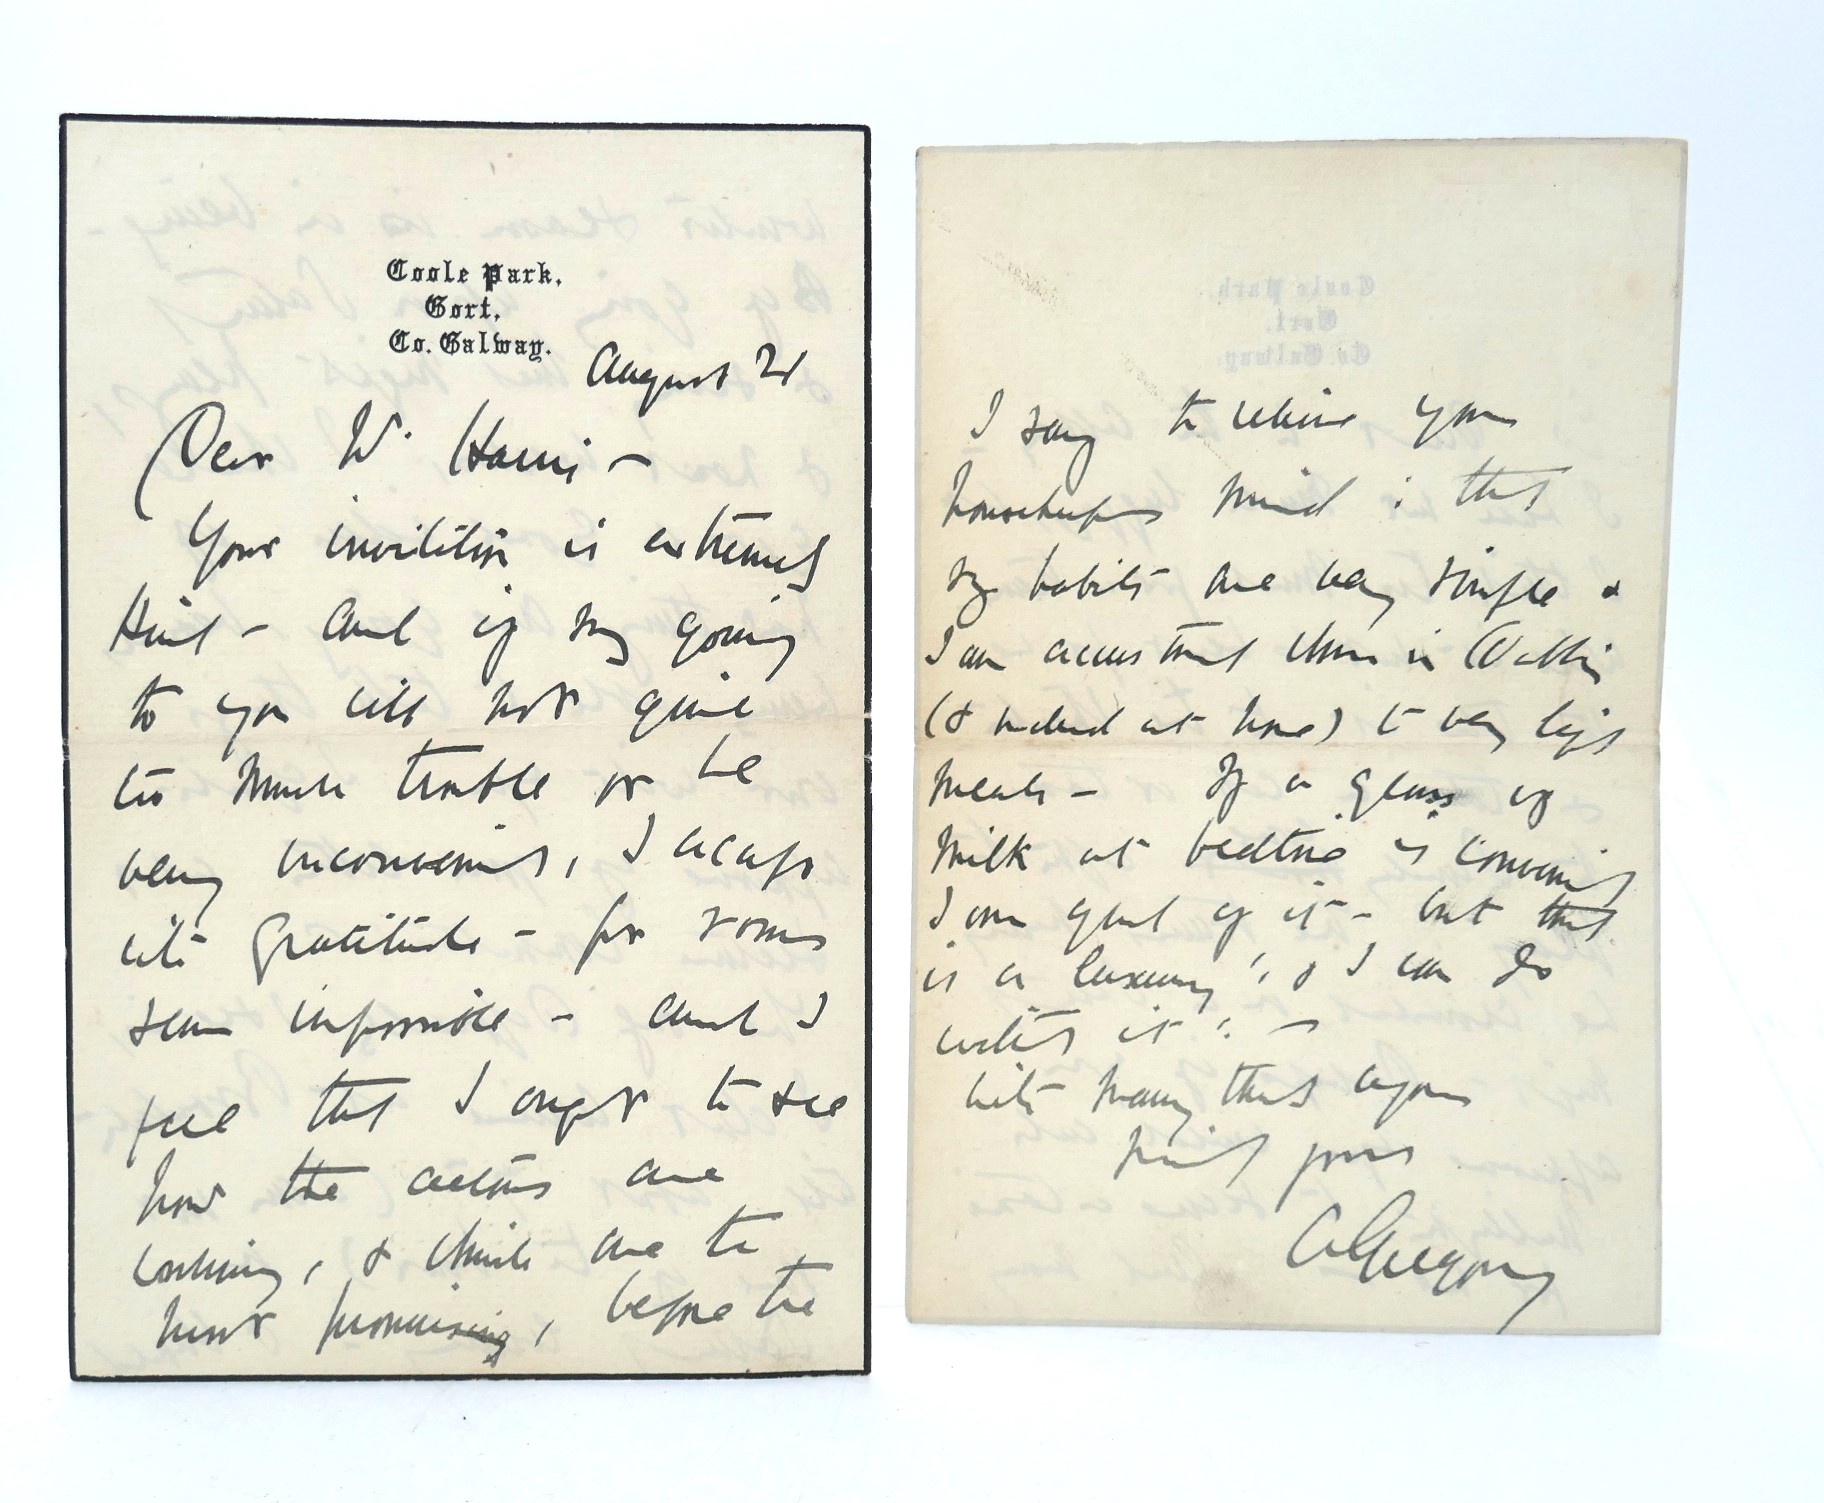 Coole Park,
Gort,
Co. Galway.
August 21
Dear Mr Harris —
Your invitation is extremely
kind — and if my going
to you will not give
too much trouble or be
very inconvenient, I accept
with gratitude — for rooms
seem impossible — and I
feel that I ought to see
how the actors are
working, & which are the
most promising, before the
I say to relieve your
housekeepers mind: that
my habits are very simple &
I am accustomed when in Dublin
(& indeed at home) to very light
meals — If a glass of
milk at bedtime is convenient
I am glad of it — but that
is a luxury, & I can do
without it: —
With many thanks
yours
A Gregory